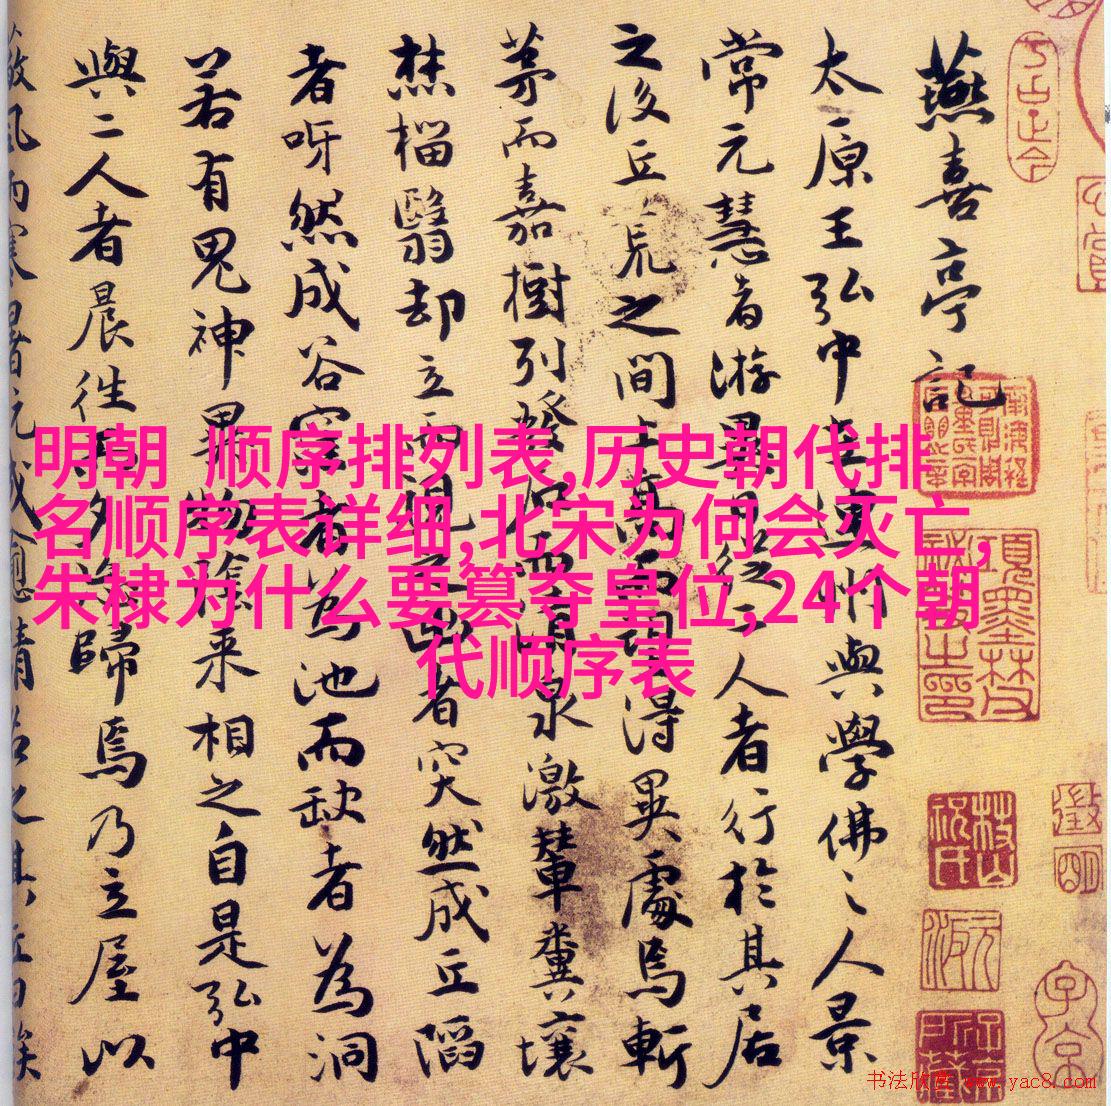 燕喜亭記
太原王弘中在連州與學佛之人景
常元慧者游異日從二人者行於其居
之後丘荒之間上高而望得異處焉斬
茅而嘉樹列發石而清泉激輦糞壤
椔翳却立而視之出者突然成丘陷
者呀然成谷窪者為池而缺者為洞
若有鬼神異物陰來相之自是弘中
與二人者晨往而夕忘歸焉乃立屋以
風雨寒暑既成愈請名之其丘曰俟
明朝 顺序排列表,历史朝代排
名顺序表详细,北宋为何会灭亡,
朱棣为什么要篡夺皇位,24个朝
代顺序表
书法欣赏 www.yac8.com